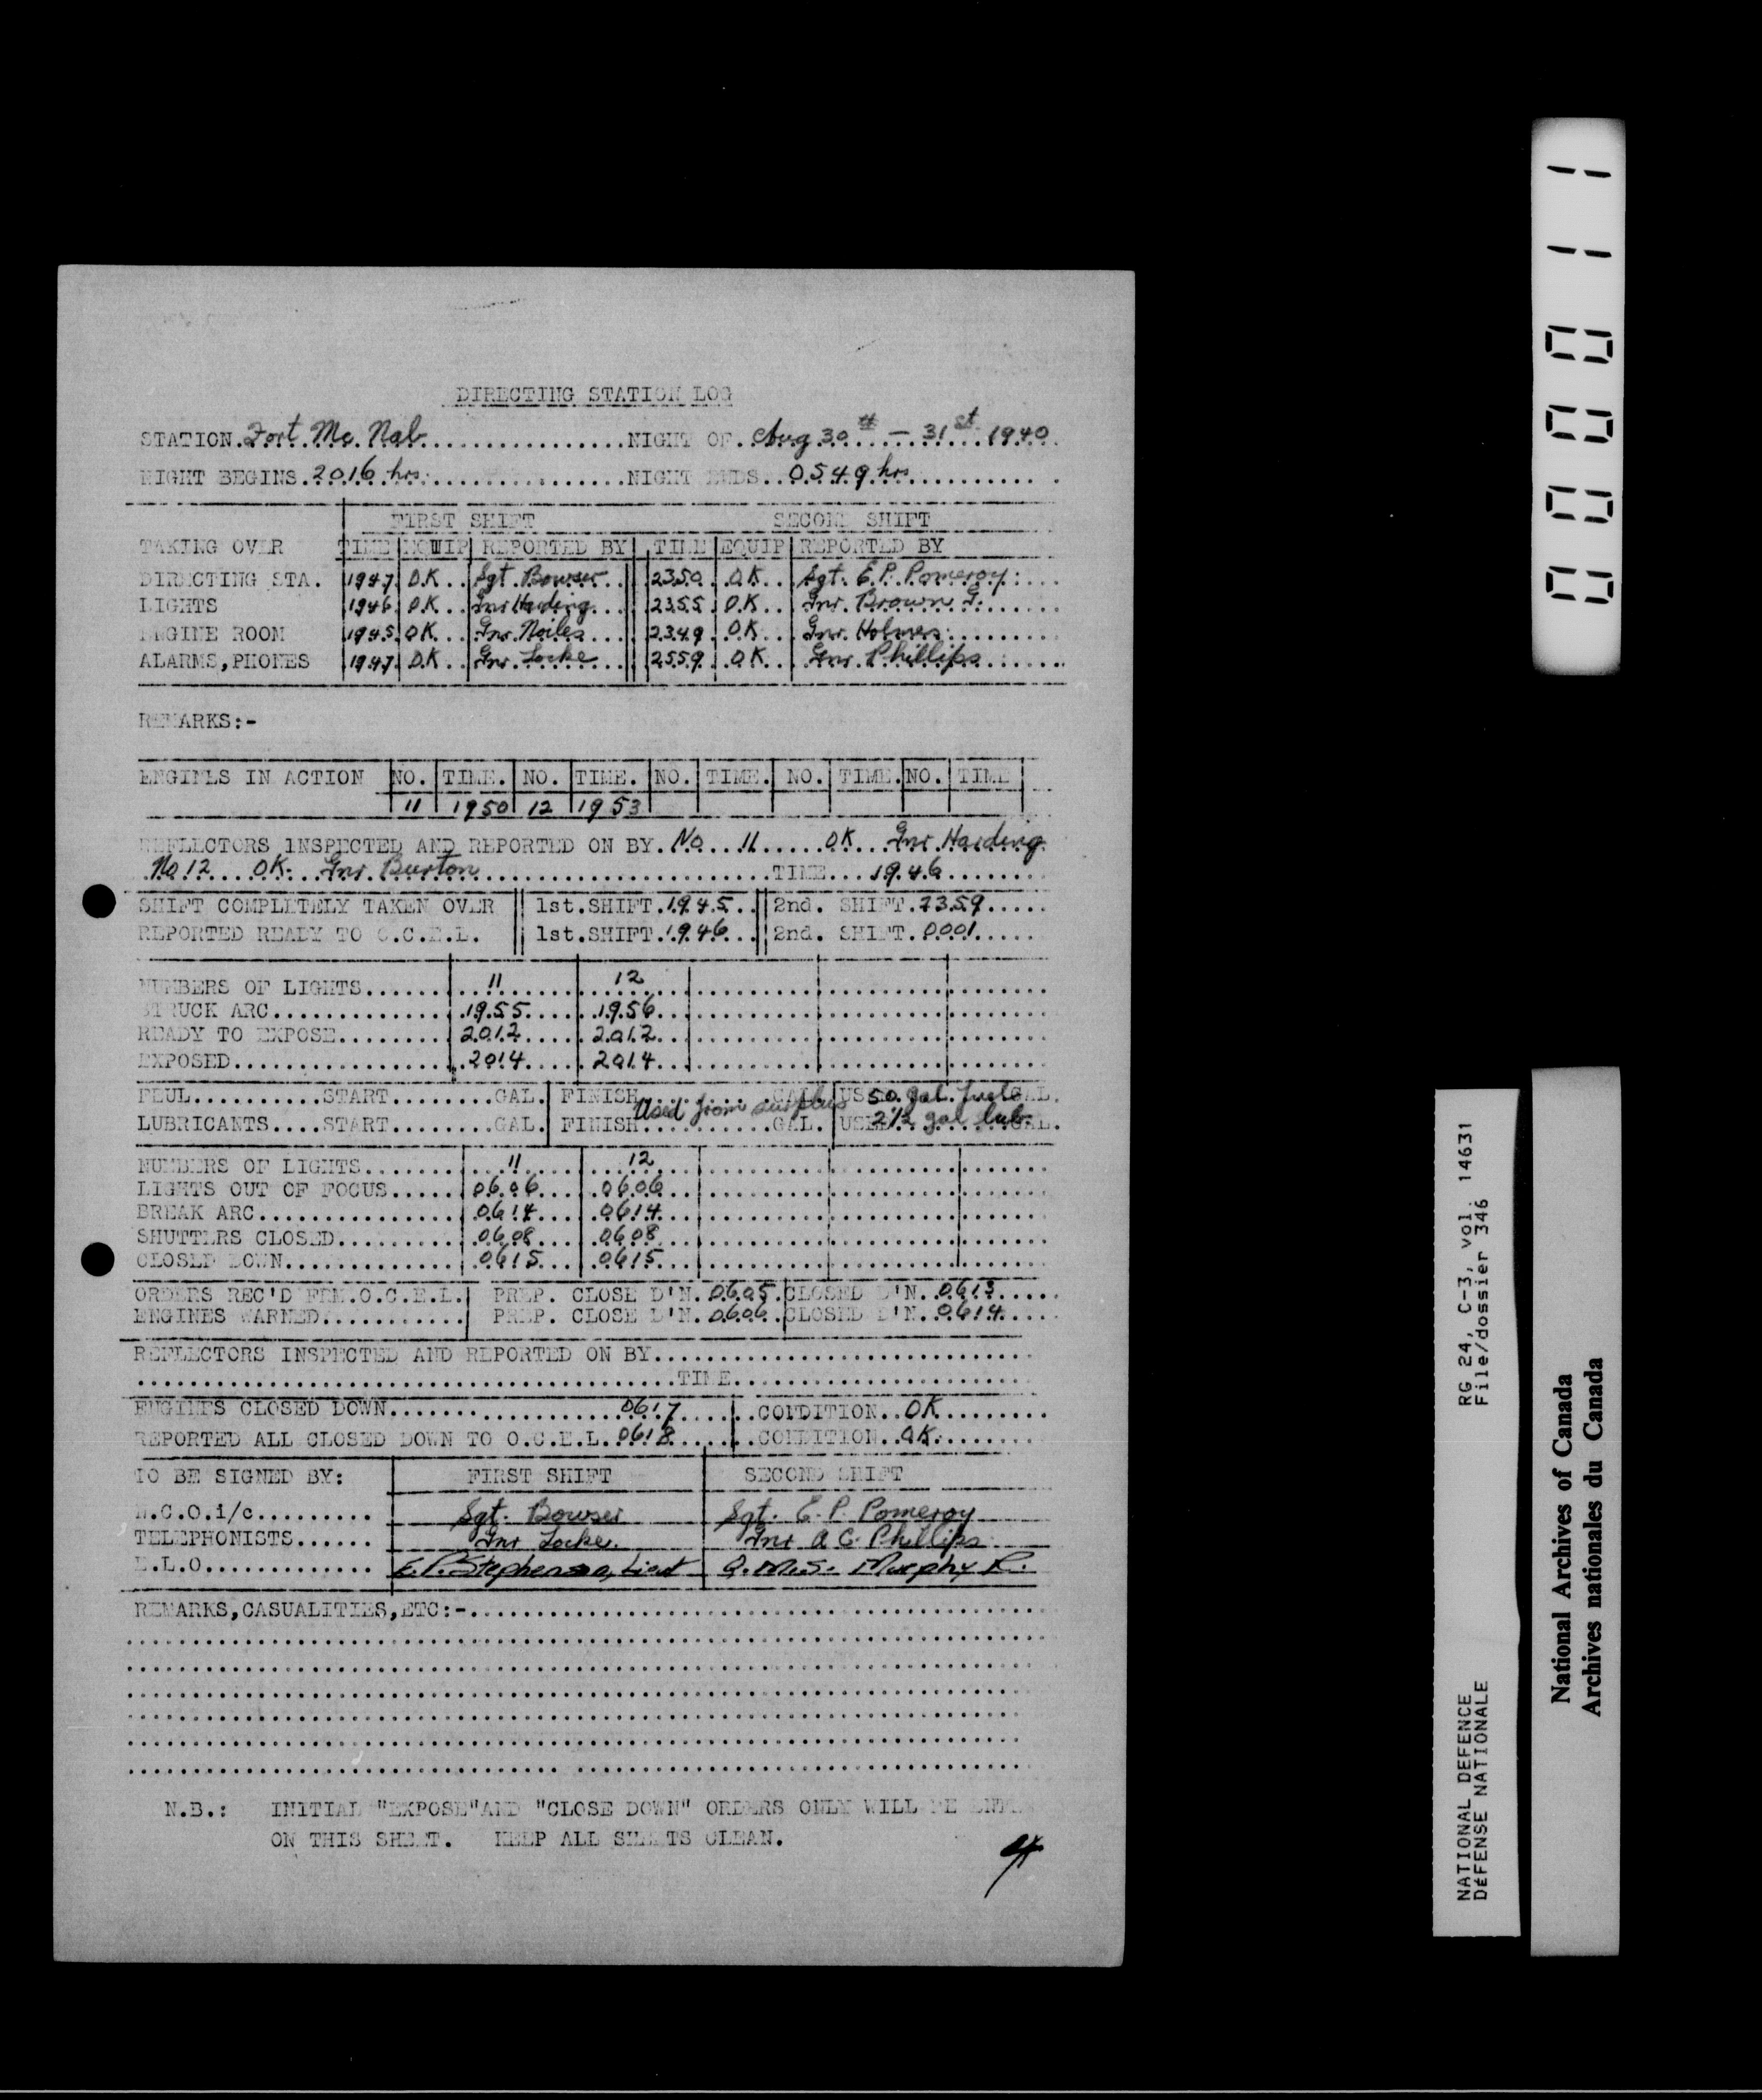 DIRECTING STATION LOG
STATION. Fort. Mc. Nab. NIGHT OF Aug 30th – 31st 1940
NIGHT BEGINS. 2016 hrs. NIGHT ENDS 0549 hrs
FIRST SHIFT SECOND SHIFT
TAKING OVER TIME EQUIP REPORTED BY TIME EQUIP REPORTED BY
DIRECTING STA. 1947 O.K. Sgt. Bowser 2350 O.K. Sgt. E.P. Pomeroy
LIGHTS 1946 O.K. Gnr Harding 2355 O.K. Gnr. Brown F.
ENGINE ROOM 1945 OK Gnr. Noiles 2349 O.K. Gnr. Holmes
ALARMS,PHONES 1947 O.K. Gnr. Locke 2559 O.K. Gnr. Phillips
REMARKS:-
ENGINES IN ACTION NO. TIME. NO. TIME. NO. TIME. NO. TIME. NO. TIME
11 1950 12 1953
REFLECTORS INSPECTED AND REPORTED ON BY. No 11 OK Gnr Harding
No 12 OK. Gnr. Burton TIME 1946
SHIFT COMPLETELY TAKEN OVER 1st.SHIFT. 1945 2nd. SHIFT. 2359
REPORTED READY TO O.C.E.L. 1st.SHIFT. 1946 2nd. SHIFT. 0001
NUMBERS OF LIGHTS 11 12
STRUCK ARC 1955 1956
READY TO EXPOSE 2012 2012
EXPOSED 2014 2014
FEUL START GAL. FINISH GAL. USED 50 gal. fuel GAL.
Used from surplus
LUBRICANTS START GAL. FINISH GAL. USED 2½ gal lub. GAL.
NUMBERS OF LIGHTS 11 12
LIGHTS OUT OF FOCUS 0606 0606
BREAK ARC 0614 0614
SHUTTERS CLOSED 0608 0608
CLOSED DOWN 0615 0615
ORDERS REC'D FRM.O.C.E.L. PREP. CLOSE D'N. 0605 CLOSED D'N. 0613
ENGINES WARNED PREP. CLOSE D'N. 0606 CLOSED D'N. 0614
REFLECTORS INSPECTED AND REPORTED ON BY
TIME
ENGINES CLOSED DOWN 0617 CONDITION OK
REPORTED ALL CLOSED DOWN TO O.C.E.L. 0618 CONDITION OK.
TO BE SIGNED BY: FIRST SHIFT SECOND SHIFT
N.C.O.i/c Sgt. Bowser Sgt. E. P. Pomeroy
TELEPHONISTS Gnr Locke. Gnr A C. Phillips
E.L.O E.P. Stephenson, Lieut Q.M.S. Murphy R.
REMARKS,CASUALITIES,ETC:-
N.B.: INITIAL "EXPOSE"AND "CLOSE DOWN" ORDERS ONLY WILL BE
ON THIS SHEET. KEEP ALL SHEETS CLEAN.
000011
RG 24, C-3, vol. 14631
File/dossier 346
NATIONAL DEFENCE
DÉFENSE NATIONALE
National Archives of Canada
Archives nationales du Canada